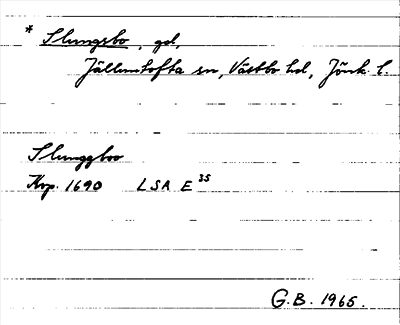 * Slungsbo, gd,
Jälluntofta sn, Västbo hd, Jönk. l.
Slunggboo
Kop. 1690 LSA E 35
G.B. 1965.